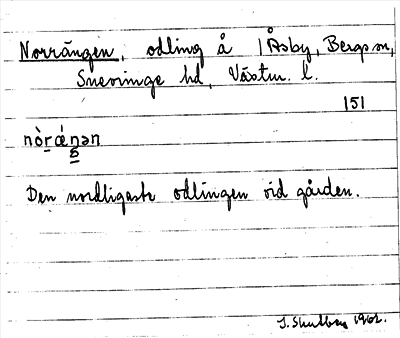 Norrängen, odling å 1 Åsby, Bergs sn,
Snevringe hd, Västm. l.
151
nòrǽŋən
5
Den nordligaste odlingen vid gården.
1961.